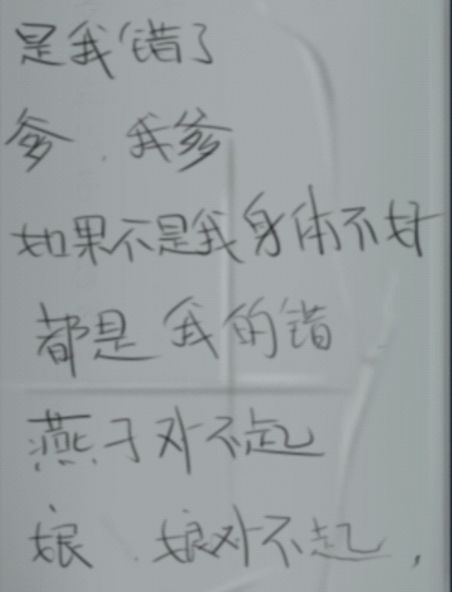 是我错了
爹.我爹
如果不是我身体不好
都是我的错
燕子对不起
娘.娘对不起,